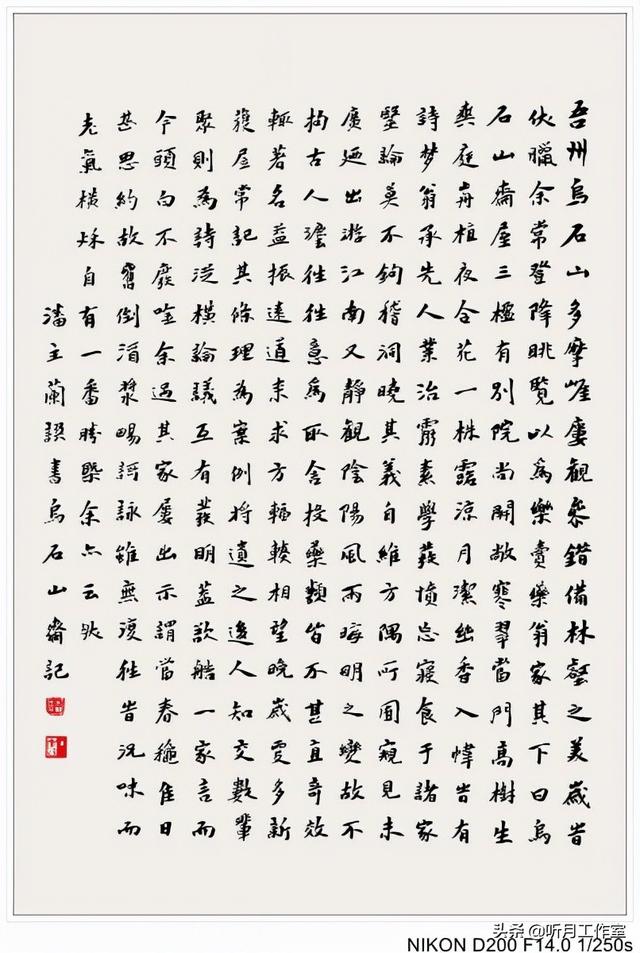 吾州烏石山多摩崖屢觀參錯備林壑之美歲旹
伏臘余常登降眺覽以為樂賣藥翁家其下曰烏
石山齋屋三楹有別院尚開敞寒翠當門高樹生
爽庭卉植夜合花一株露涼月潔幽香入幃旹有
詩夢翁承先人業治靈素學發憤忘寢食于諸家
堅論莫不鉤稽洞曉其義自維方隅所囿窺見未
廣廼出游江南又靜觀陰陽風雨晦明之變故不
拘古人灋往往意為取舍投藥類皆不甚直奇效
輒著名益振遠道來求方輻輳相望晚歲更多新
獲屋常記其條理為案例將遺之後人知交數輩
聚則為詩從橫論議互有發明蓋歆皓一家言而
今頭白不廢唫余過其家屢出示謂當春穠佳日
甚思約故舊倒酒漿暢詩詠雖無復往旹況味而
老氣橫秋自有一番勝槩余亦云然
潘主蘭譔書烏石山齋記
头条 @听月工作室
NIKON D200 F14.0 1/250s